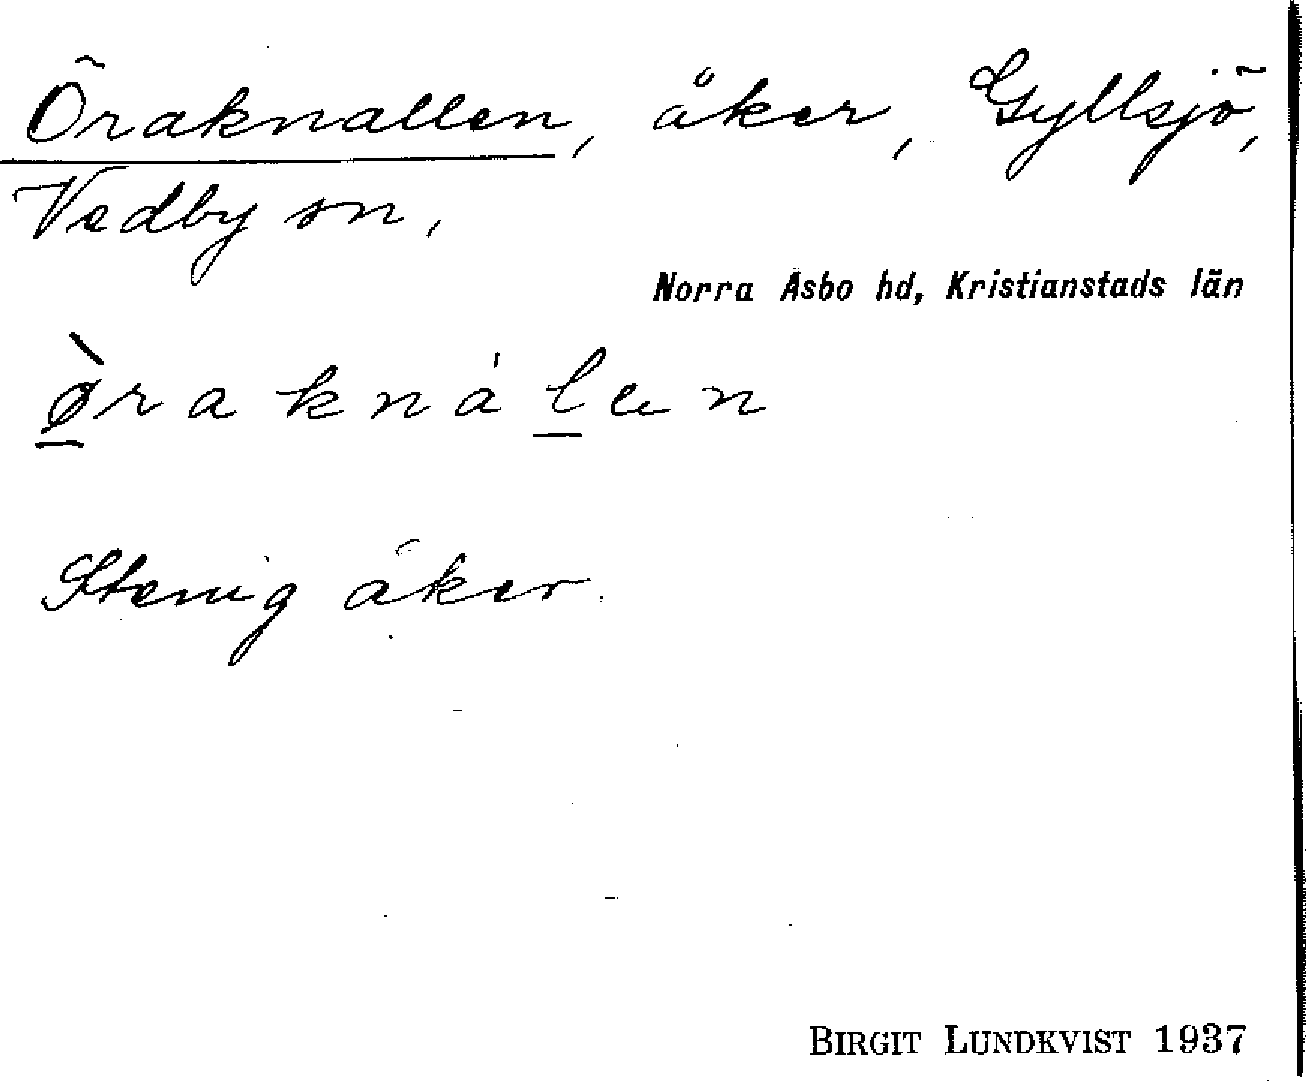 Öraknallen, åker, Gyllsjö,
Vedby sn,
Norra Åsbo hd, Kristianstads län
ø̱̀raknáḻen
Stenig åker.
BIRGIT LUNDKVIST 1937